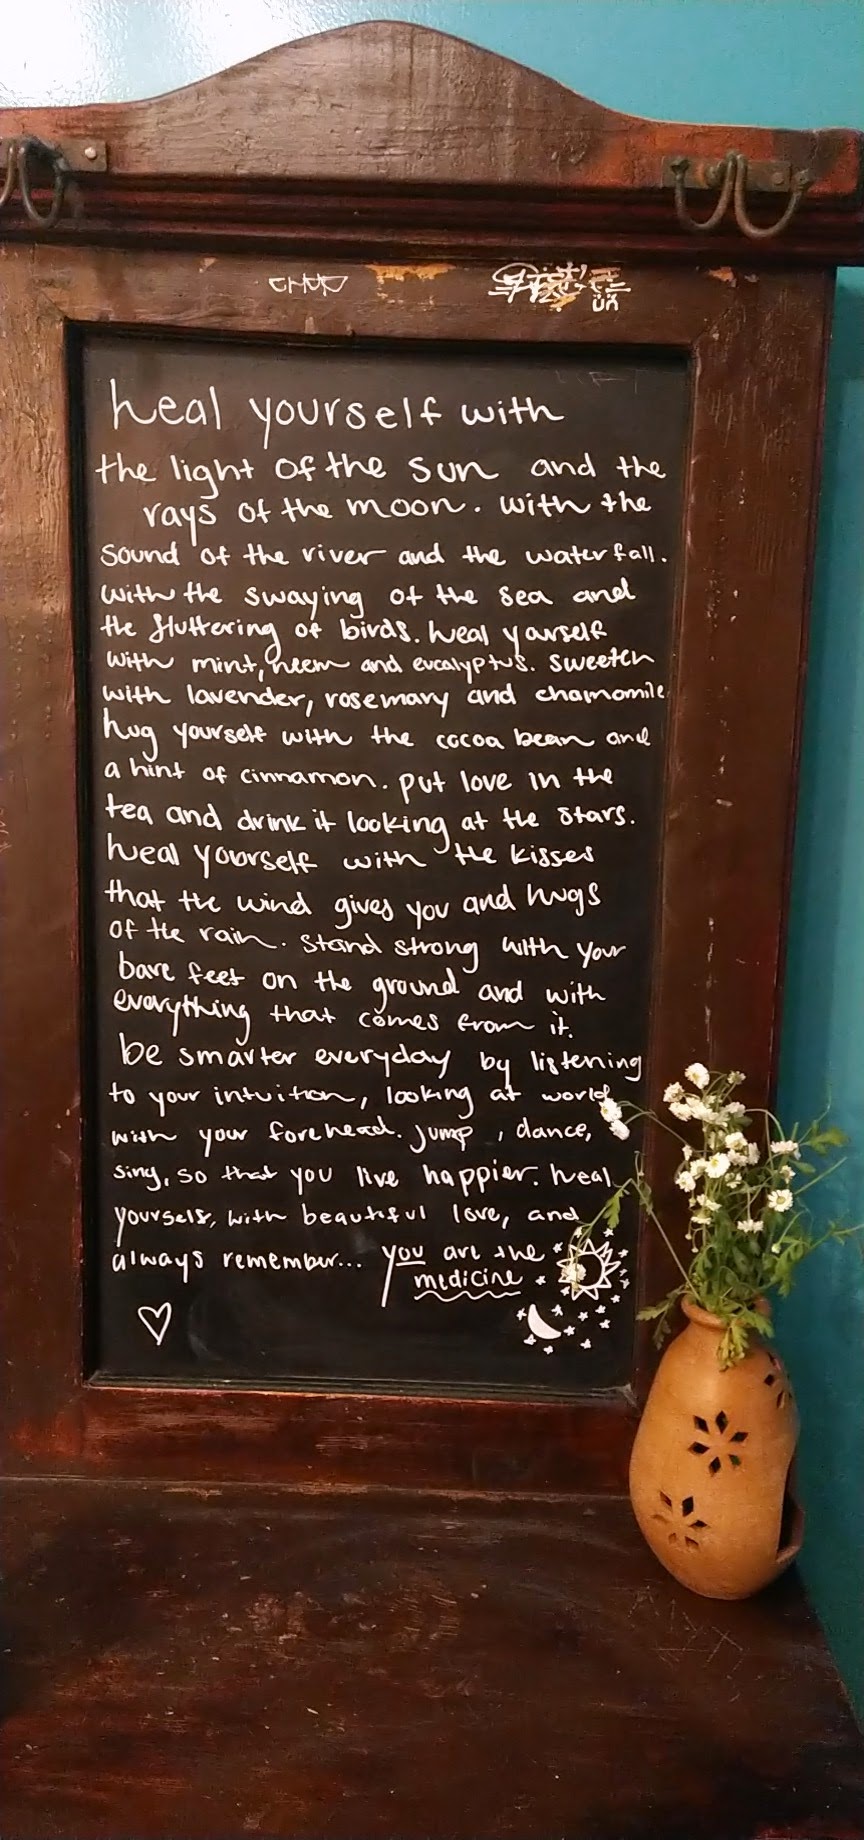 heal yourself with
the light of the sun and the
rays of the moon. with the
sound of the river and the waterfall.
with the swaying of the sea and
the fluttering of birds. heal yourself
with mint, neem and eucalyptus. sweeten
with lavender, rosemary and chamomile
hug yourself with the cocoa bean and
a hint of cinnamon. put love in the
tea and drink it looking at the stars.
heal yourself with the kisses
that the wind gives you and hugs
of the rain. stand strong with your
bare feet on the ground and with
everything that comes from it.
be smarter everyday by listening
to your intuition, looking at world
with your forehead. jump, dance,
sing, so that you live happier. heal
yourself, with beautiful love, and
always remember... you are the
medicine